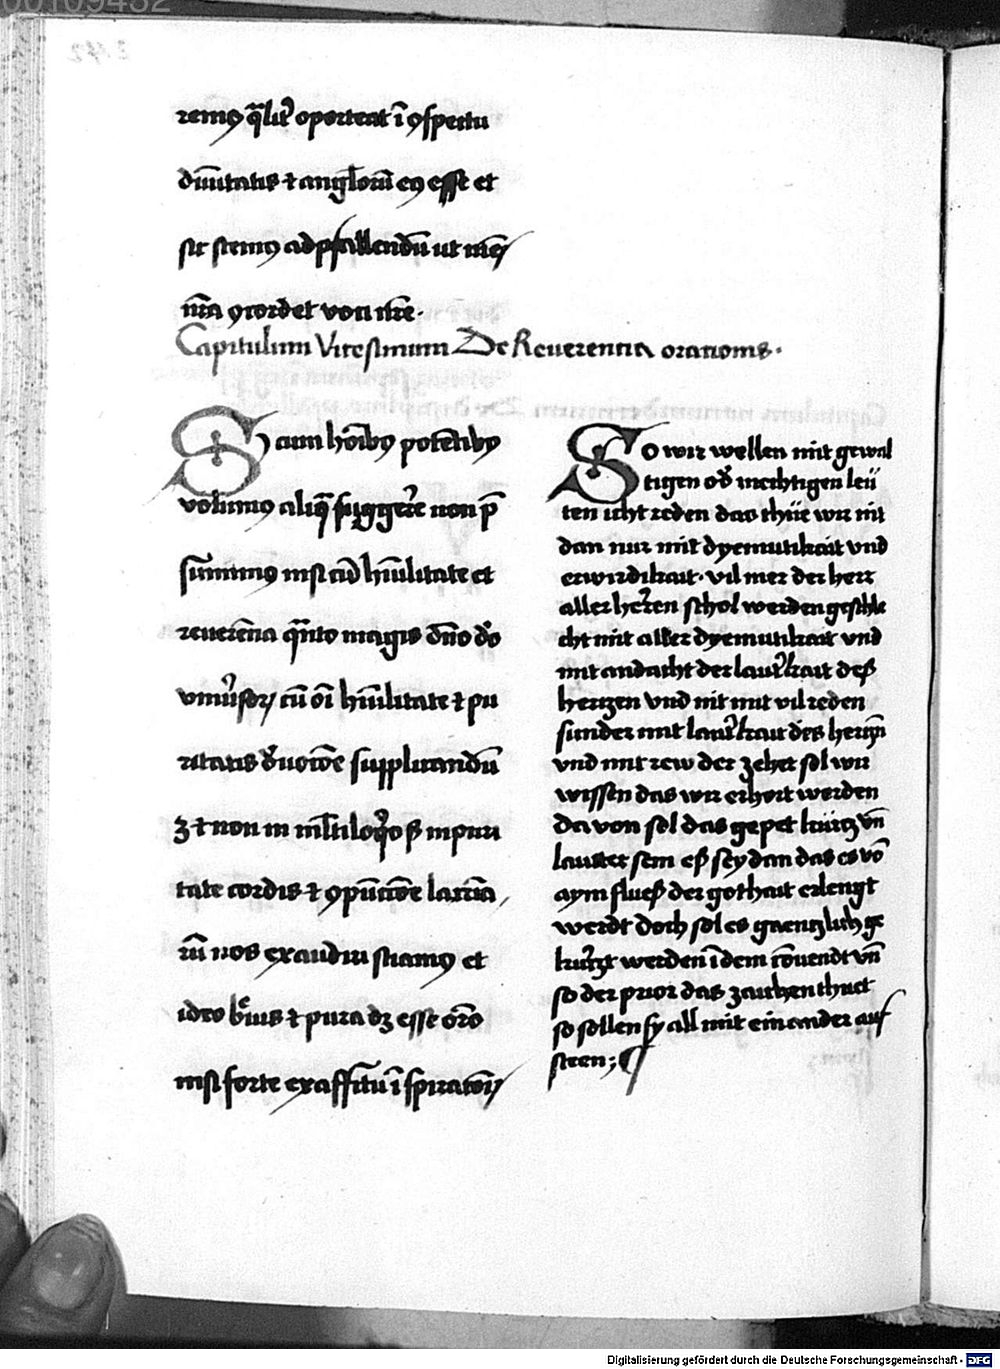 remꝰ qͣlit᷑ oporteat ī ꝯspectu
diuītatis ⁊ angl̄oꝝ eꝰ esse et
sic stemꝰ ad psallendū ut mēs
nr̄a ꝯcordet voci nr̄e.
Capitulum Vicesimum De Reuerentia orationis.
Si cum hōībꝰ potētibꝰ
volumꝰ aliq̄ suggere᷑ non p̄
sumimꝰ nisi cū hūilitate et
reuerēcia qͣnto magis dn̄o deo
vniu᷑soꝝ cū oī hūilitate ⁊ pu
ritatis deuotiōe supplicandū
ꝫ ⁊ non in ml̄tiloqͦo ꝫ in puri
tate cordis ⁊ ꝯpūctiōe lacrīa
rū nos exaudiri sciamꝰ et
ideo breuis ⁊ pura dꝫ esse orō
nisi forte ex affectu īspiratōis
So wir wellen mit gewal
tigen od᷑ mechtigen leü
ten icht reden das thüe wir nit
dan nur mit dyemutikait vnd
erwirdikait. vil mer der herr
aller herren schol werden geflehe
cht mit aller dyemutikait vnd
mit andacht der laut᷑kait deß
herczen vnd nit mit vil reden
sunder mit laut᷑kait des herczē
vnd mit rew der zeher sol wir
wissen das wir erhort werden
da von sol das gepet kürcz vn̄
lautter sein eß sey dan das es vō
aym flueß der gothait erlengt
werdt doch sol es gaenczlich ge
kürczt werden ī dem cōuendt vn̄
so der prior das zaichen thuet
so sollen sy all mit einander auf
steen;
Digitalisierung gefördert durch die Deutsche Forschungsgemeinschaft - DFG